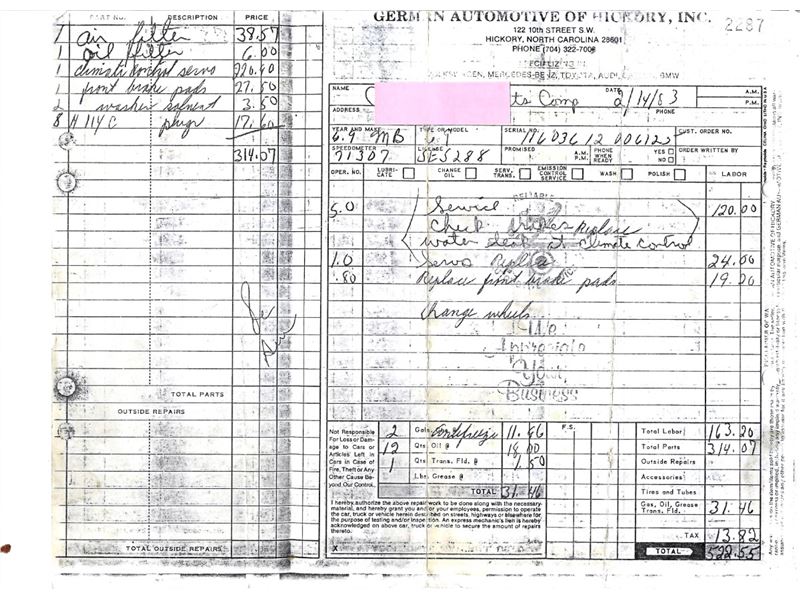 PART NO. DESCRIPTION PRICE
1 air filter 38.57
1 oil filter 6.00
1 climate control servo 220.40
1 front brake pads 27.50
2 washer solvent 3.50
8 H 114C plugs 17.60
314.07
TOTAL PARTS
OUTSIDE REPAIRS
TOTAL OUTSIDE REPAIRS
GERMAN AUTOMOTIVE OF HICKORY, INC. 2287
122 10th STREET S.W.
HICKORY, NORTH CAROLINA 28601
PHONE (704) 322-7006
SPECIALIZING IN
MERCEDES-BENZ, TOYOTA, AUDI, BMW
NAME Comp DATE 2/14/83 A.M. P.M.
ADDRESS PHONE
YEAR AND MAKE 6.9 MB TYPE OR MODEL SERIAL NO. 116036 12 006122 CUST. ORDER NO.
SPEEDOMETER 71307 LICENSE SES288 PROMISED A.M. P.M. PHONE WHEN READY YES NO ORDER WRITTEN BY
OPER. NO. LUBRI-CATE CHANGE OIL SERV. TRANS. EMISSION CONTROL SERVICE WASH POLISH LABOR
RELIABLE
5.0 Service 120.00
Check brakes Replace
water leak at climate control
1.0 Servo Replace 24.00
.80 Replace front brake pads 19.20
Change wheels
We
Appreciate
Your
Business
Not Responsible For Loss or Damage to Cars or Articles Left in Cars in Case of Fire, Theft or Any Other Cause Beyond Our Control.
2 Gals. Antifreeze 11.96
12 Qts. Oil @ 18.00
1 Qts. Trans. Fld. @ 1.50
Lbs. Grease @
TOTAL 31.46
F.S.
I hereby authorize the above repair work to be done along with the necessary
material, and hereby grant you and/or your employees, permission to operate
the car, truck or vehicle herein described on streets, highways or elsewhere for
the purpose of testing and/or inspection. An express mechanic's lien is hereby
acknowledged on above car, truck or vehicle to secure the amount of repairs
thereto.
X
Total Labor 163.20
Total Parts 314.07
Outside Repairs
Accessories
Tires and Tubes
Gas, Oil, Grease Trans. Fld. 31.46
TAX 13.82
TOTAL 522.55